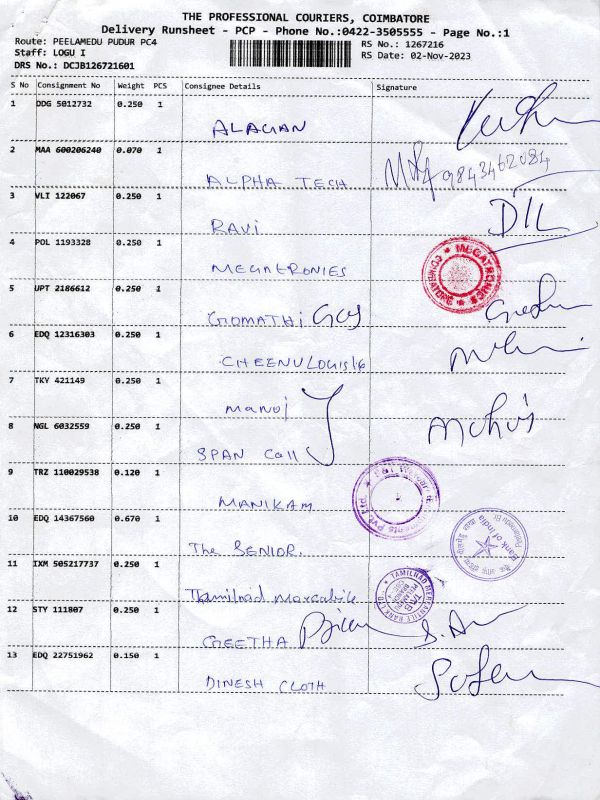 THE PROFESSIONAL COURIERS, COIMBATORE
Delivery Runsheet - PCP - Phone No.:0422-3505555 - Page No.:1
Route: PEELAMEDU PUDUR PC4
RS No.: 1267216
Staff: LOGU I
RS Date: 02-Nov-2023
DRS No.: DCJB126721601
S No Consignment No Weight PCS Consignee Details Signature
1 DDG 5012732 0.250 1
ALAGIAN
2 MAA 600206240 0.070 1
9843462084
ALPHA TECH
3 VLI 122067 0.250 1
DIL
RAVI
4 POL 1193328 0.250 1
MEGATRONIES
5 UPT 2186612 0.250 1
GOMATHI
6 EDQ 12316303 0.250 1
CHEENULOGISTIC
7 TKY 421149 0.250 1
manoj
8 NGL 6032559 0.250 1
SPAN Call
9 TRZ 110029538 0.120 1
MANIKAM
10 EDQ 14367560 0.670 1
Bank of India
The SENIOR.
11 IXM 505217737 0.250 1
TAMILNAD MERCANTILE BANK LTD
Tamilnad Marcatile
12 STY 111807 0.250 1
GEETHA
13 EDQ 22751962 0.150 1
DINESH CLOTH